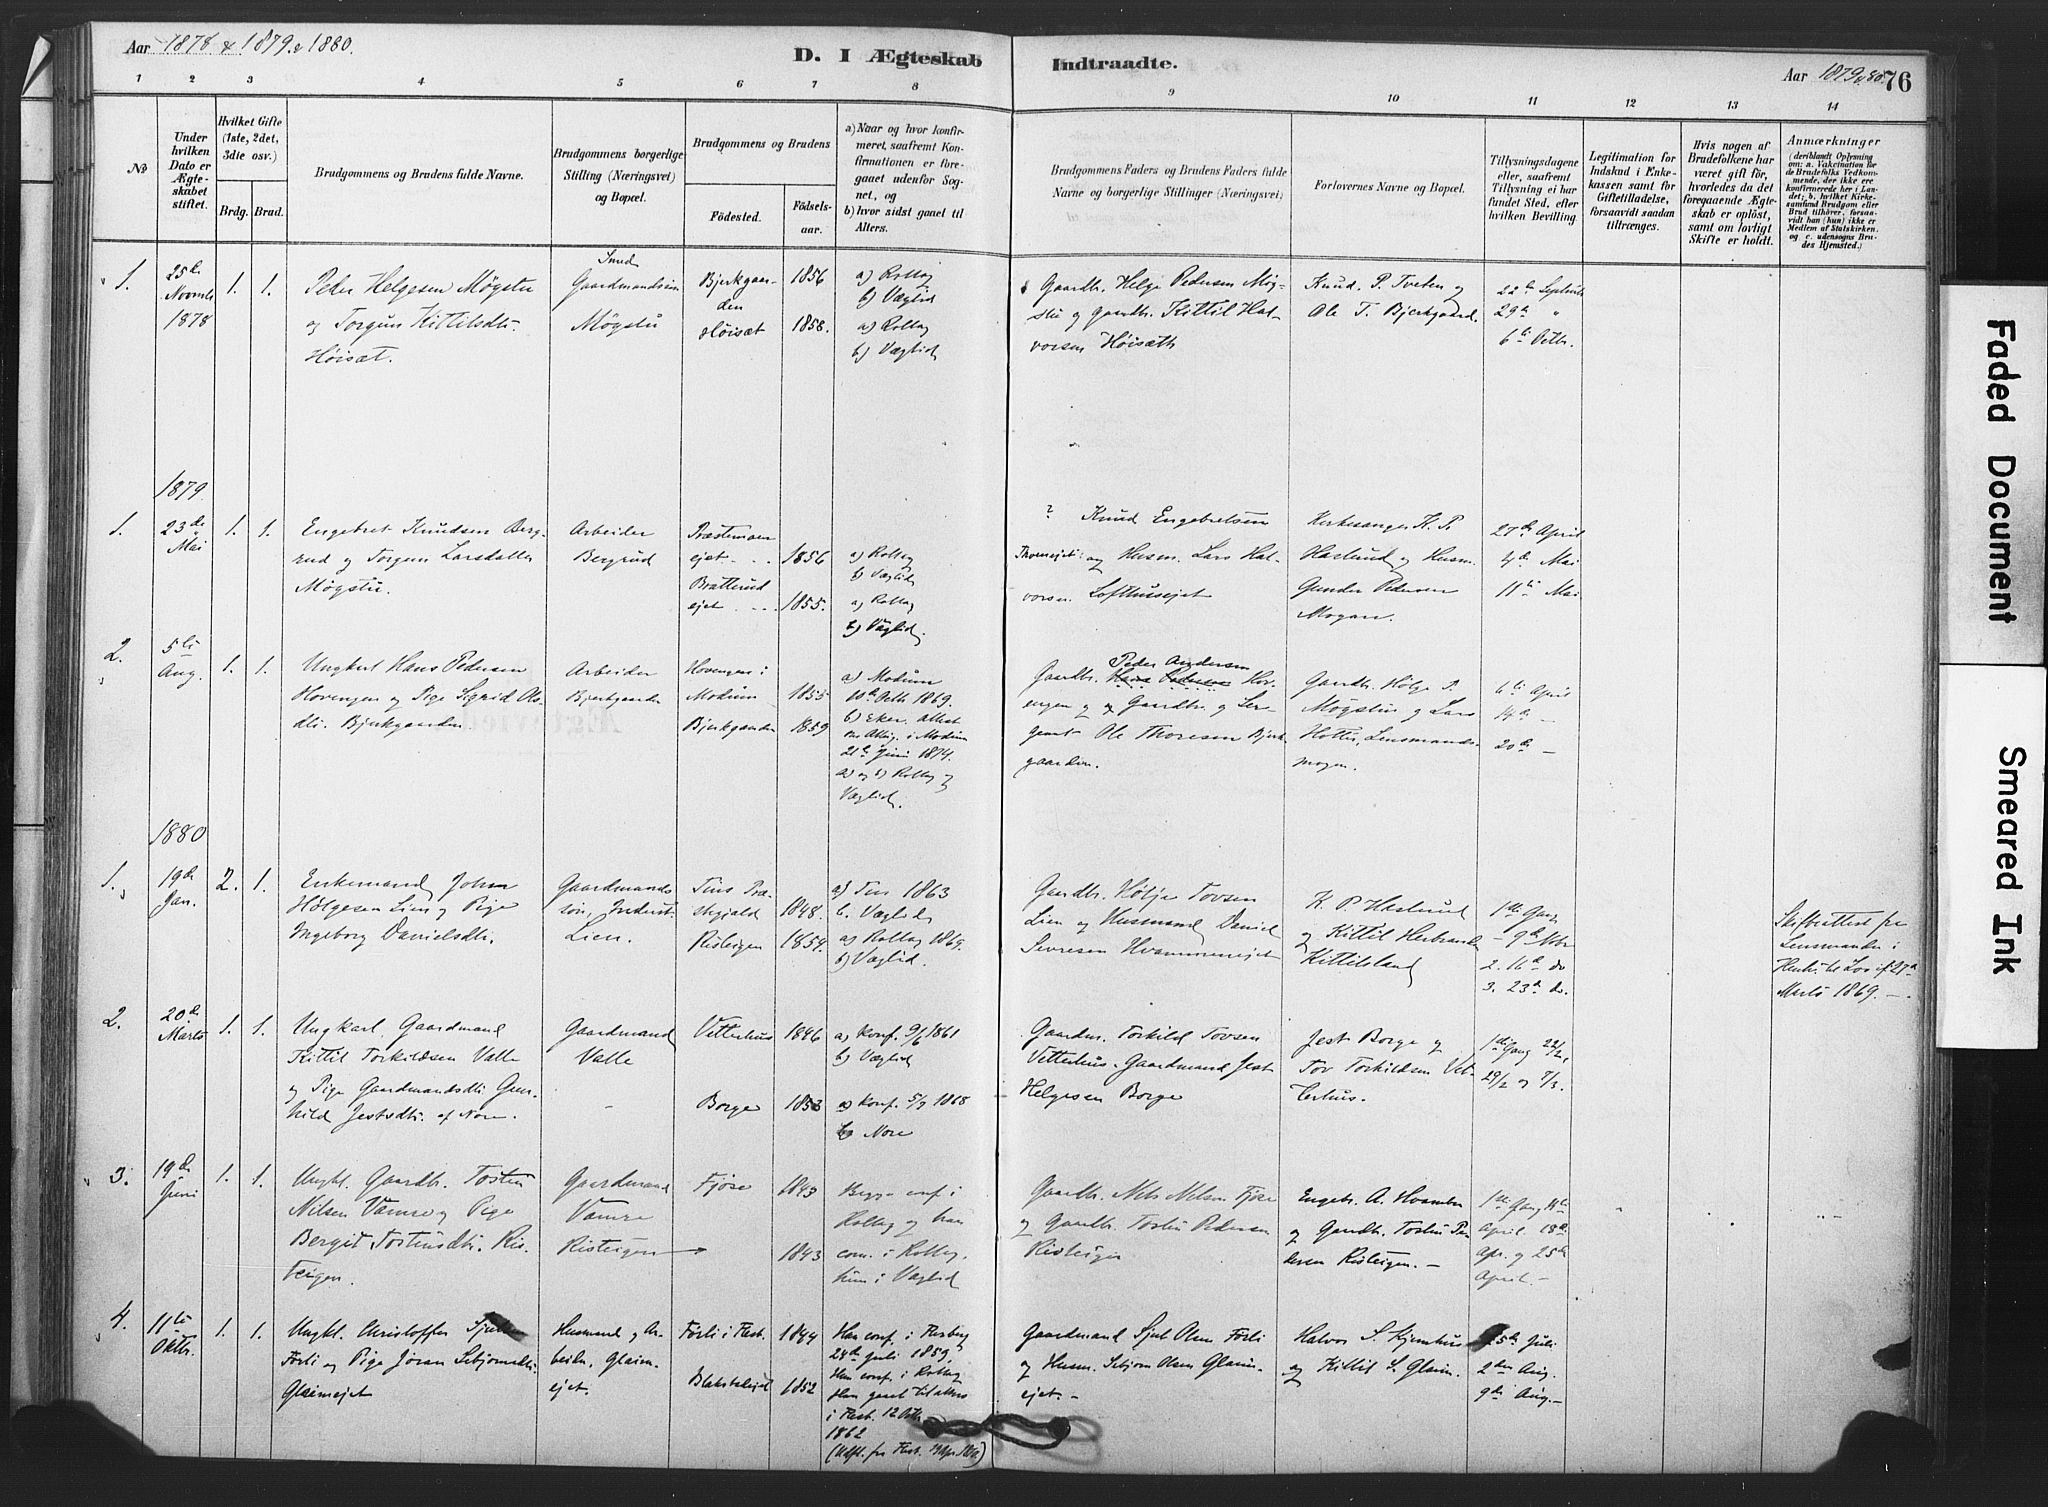 Aar 1878 & 1879 & 1880.
D. I Ægteskab Indtraadte.
Aar 1879 & 80. 76
1 2 3 4 5 6 7 8 9 10 11 12 13 14
No
Under hvilken Dato er Ægteskabet stiftet.
Hvilket Gifte (1ste, 2det, 3die osv.)
Brdg. Brud.
Brudgommens og Brudens fulde Navne.
Brudgommens borgerlige Stilling (Næringsvei) og Bopæl.
Brudgommens og Brudens
Födested.
Födselsaar.
a) Naar og hvor konfirmeret, saafremt Konfirmationen er foregaaet udenfor Sognet, og
b) hvor sidst gaaet til Alters.
Brudgommens Faders og Brudens Faders fulde Navne og borgerlige Stillinger (Næringsvei)
Forlovernes Navne og Bopæl.
Tillysningsdagene eller, saafremt Tillysning ei har fundet Sted, efter hvilken Bevilling.
Legitimation for Indskud i Enkekassen samt for Giftetilladelse, forsaavidt saadan tiltrænges.
Hvis nogen af Brudefolkene har været gift før, hvorledes da det foregaaende Ægteskab er oplöst, samt om lovligt Skifte er holdt.
Anmærkninger
(deriblandt Oplysning om: a. Vakcination for de Brudefolks Vedkommende, der ikke ere konfirmerede her i Landet; b. hvilket Kirkesamfund Brudgom eller Brud tilhörer, forsaavidt han (hun) ikke er Medlem af Statskirken, og c. udensogns Brudes Hjemsted.)
1. 25de Novmb. 1878 1. 1.
Peder Helgesen Mögstu
og Torgun Kittilsdtr.
Höisæt.
Smed
Gaardmandssön
Mögstu
Bjerkgaarden 1856
Höisæt 1858.
a) Rollag
b) Væglid
a) Rollag
b) Væglid
Gaardbr. Helge Pedersen Mögstu og Gaardbr. Kittil Halvorsen Höisæth
Knud P. Tveten og
Ole T. Bjerkgaard.
22de Septmb
29de "
6te Octbr.
1879
1. 23de Mai 1. 1.
Engebret Knudsen Bergrud og Torgun Larsdatter
Mögstu.
Arbeider
Bergrud
Præstemoen
ejet 1856
Bratterud
ejet 1855.
a) Rollag
b) Væglid
a) Rollag
b) Væglid.
? Knud Engebretsen
og Husm. Lars Halvorsen Lofthusejet
Kirkesanger K. P.
Haslerud og Husm.
Gunder Pedersen
Mogan.
27de April
4de Mai
11te Mai
2. 5te Aug. 1. 1.
Ungkarl Hans Pedersen
Hovengen og Pige Sigrid Olsdtr. Bjerkgaarden
Arbeider
Bjerkgaarden
Hovengen i
Modum 1855
Bjerkgaarden 1859
a) Modum
10de Octb 1869.
b) Eker. attest
i Modum
21de Juni 1874.
a) og b) Rollag og
Væglid.
Peder Andersen
Gaardbr. Hans Pedersen Hovengen og Gaardbr. og Sergeant Ole Thoresen Bjerkgaarden.
Gaardbr. Helge P.
Mögstu og Lars
Hottus, Lensmandsmogen.
6te April
14de -
20de -
1880
1. 19de Jan. 2. 1.
Enkemand John
Helgesen Lien og Pige
Ingeborg Danielsdtr.
Gaardmandssön, Inderst
Lien.
Tins Præstegjeld 1848.
Risteigen 1859.
a) Tin 1863
b. Væglid
a) Rollag 1869.
b) Væglid.
Gaardbr. Hölje Tovsen
Lien og Husmand Daniel
Sevresen Hvammenejet
K. P. Haslerud
og Kittil Herbrands
Kittilsland
1ste Gang
- 9de Nbr
2. 16de do
3. 23de do.
Skifteattest fra
Lensmanden i
Lov af 27de
Marts 1869. -
2. 20de Marts 1. 1.
Ungkarl Gaardmand
Kittil Torkildsen Valle
og Pige Gaardmandsdtr. Gunhild Jestsdtr. af Nore.
Gaardmand
Valle
Vetterhus 1846
Borge 1853
a) Konf. 9/6 1861
b) Væglid
a) Konf. 5/7 1868
b) Nore
Gaardm. Torkild Tovsen
Vetterhus. Gaardmand Jest
Helgesen Borge
Jest Borge og
Tov Torkildsen Vetterhus.
1ste Gang 22/2,
29/2 og 7/3.
3. 19de Juni 1. 1.
Ungk. Gaardbr. Tosten
Nilsen Vamre og Pige
Bergit Tostensdtr. Risteigen.
Gaardmand
Vamre
Risteigen
Fjöse 1843
1843
Begge conf. i
Rollag og han
com. i Rollag,
hun i Væglid
Gaardbr. Nels Nelsen Fjöse
og Gaardbr. Tosten Pedersen
Risteigen
Engebr. A. Hvamben
og Gaardbr. Tosten Pedersen Risteigen. -
1ste Gang 11te
April 18de
Apr. og 25de
April. -
4. 11te Oktbr. 1. 1.
Ungk. Christoffer
Forli og Pige Jöran Sebjörnsdtr.
Glaimejet
Husmand og Arbeider, Glaimejet.
Forli i Flesb. 1844
Blakstadejet 1852
Han conf. i Flesberg
24de Juli 1859.
Hun conf. i Rollag
Han gaaet til alters
i Flesb. 12 Octb.
1862
Gaardmand Sjul Olsen Forli
og Husm. Sebjörn Olsen Glaimejet. -
Halvor S. Kjemhus
og Kittil S. Glaim.
25de Juli
2den Aug.
9de Aug. -
Faded Document
Smeared Ink